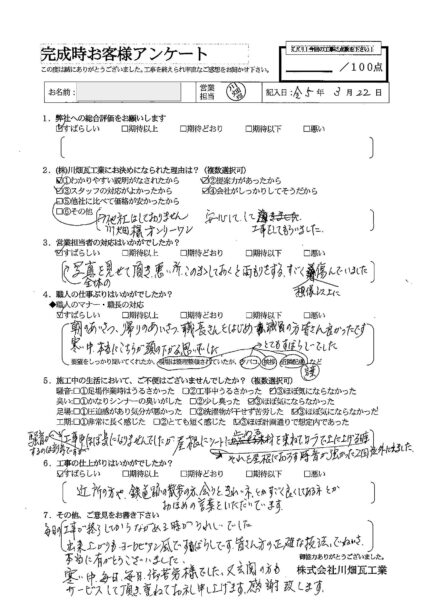 完成時お客様アンケート
この度は誠にありがとうございました。工事を終えられ率直なご感想をお聞かせ下さい。
ズバリ!今回の工事に点数を下さい!
/100点
お名前:
営業
担当
記入日: 令5年3月22日
1.弊社への総合評価をお願いします
☑すばらしい □期待以上 □期待どおり □期待以下 □悪い
2.(株)川畑瓦工業にお決めになられた理由は?(複数選択可)
☑①わかりやすい説明がなされたから ☑②提案力があったから
☑③スタッフの対応がよかったから ☑④会社がしっかりしてそうだから
□⑤他社に比べて価格が安かったから
□⑥その他
他社はしておりません 安心して、
川畑様オンリーワン 工事をしてもらいました。
3.営業担当者の対応はいかがでしたか?
☑すばらしい □期待以上 □期待どおり □期待以下 □悪い
写真を見せて頂き悪い所、このままにしておくと雨もりをする、すごく傷んでいました
全体の 想像以上に
4.職人の仕事ぶりはいかがでしたか?
◆職人のマナー・職長の対応
☑すばらしい □期待以上 □期待どおり □期待以下 □悪い
朝のあいさつ、帰りのあいさつ、職長さんをはじめ 職員の方皆さん良かったです
寒い中、本当にこちらが頭の下がる思いでした とてもすばらしいでした
5.施工中の生活において、ご不便はございませんでしたか?(複数選択可)
騒音:□足場作業時はうるさかった □②工事中うるさかった ☑③ほぼ気にならなかった
臭い:□①かなりシンナーの臭いがした □②少し臭った ☑③ほぼ気にならなかった
足場:□①圧迫感があり気分が悪かった □②洗濯物が干せず苦労した ☑③ほぼ気にならなかった
工期:□①非常に長く感じた □②とても短く感じた ☑③ほぼ計画通りで想定内であった
工事中は気になりませんでしたが 屋根にシート
6.工事の仕上がりはいかがでしたか?
☑すばらしい □期待以上 □期待どおり □期待以下 □悪い
近所の方や、鉄道路の散歩の方、会うときれいネ、とかすごく良くしてあるネとか
おほめの言葉をいただいています。
7.その他、ご意見をお書き下さい
毎日の工事が終了してからながめる時がうれしいでした
出来上がりもヨーロピアン風ですばらしです。皆さん方の正確な技法、でのネ。
本当に有がとうございました。
寒い中、毎日、毎日、御苦労様でした、又玄関の方も
サービスして頂き重ねてお礼申し上げます。感謝致します。
御協力ありがとうございました。
株式会社川畑瓦工業